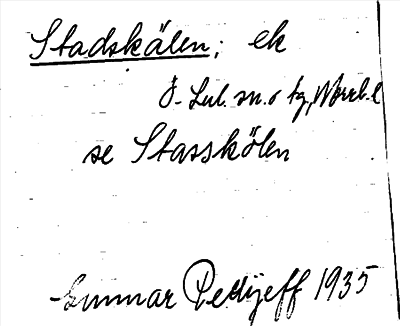 Stadskälen; ek
Ö-Lul. sn. o tg, Norrb. l
se Stasskölen
Gunnar Pellijeff 1935